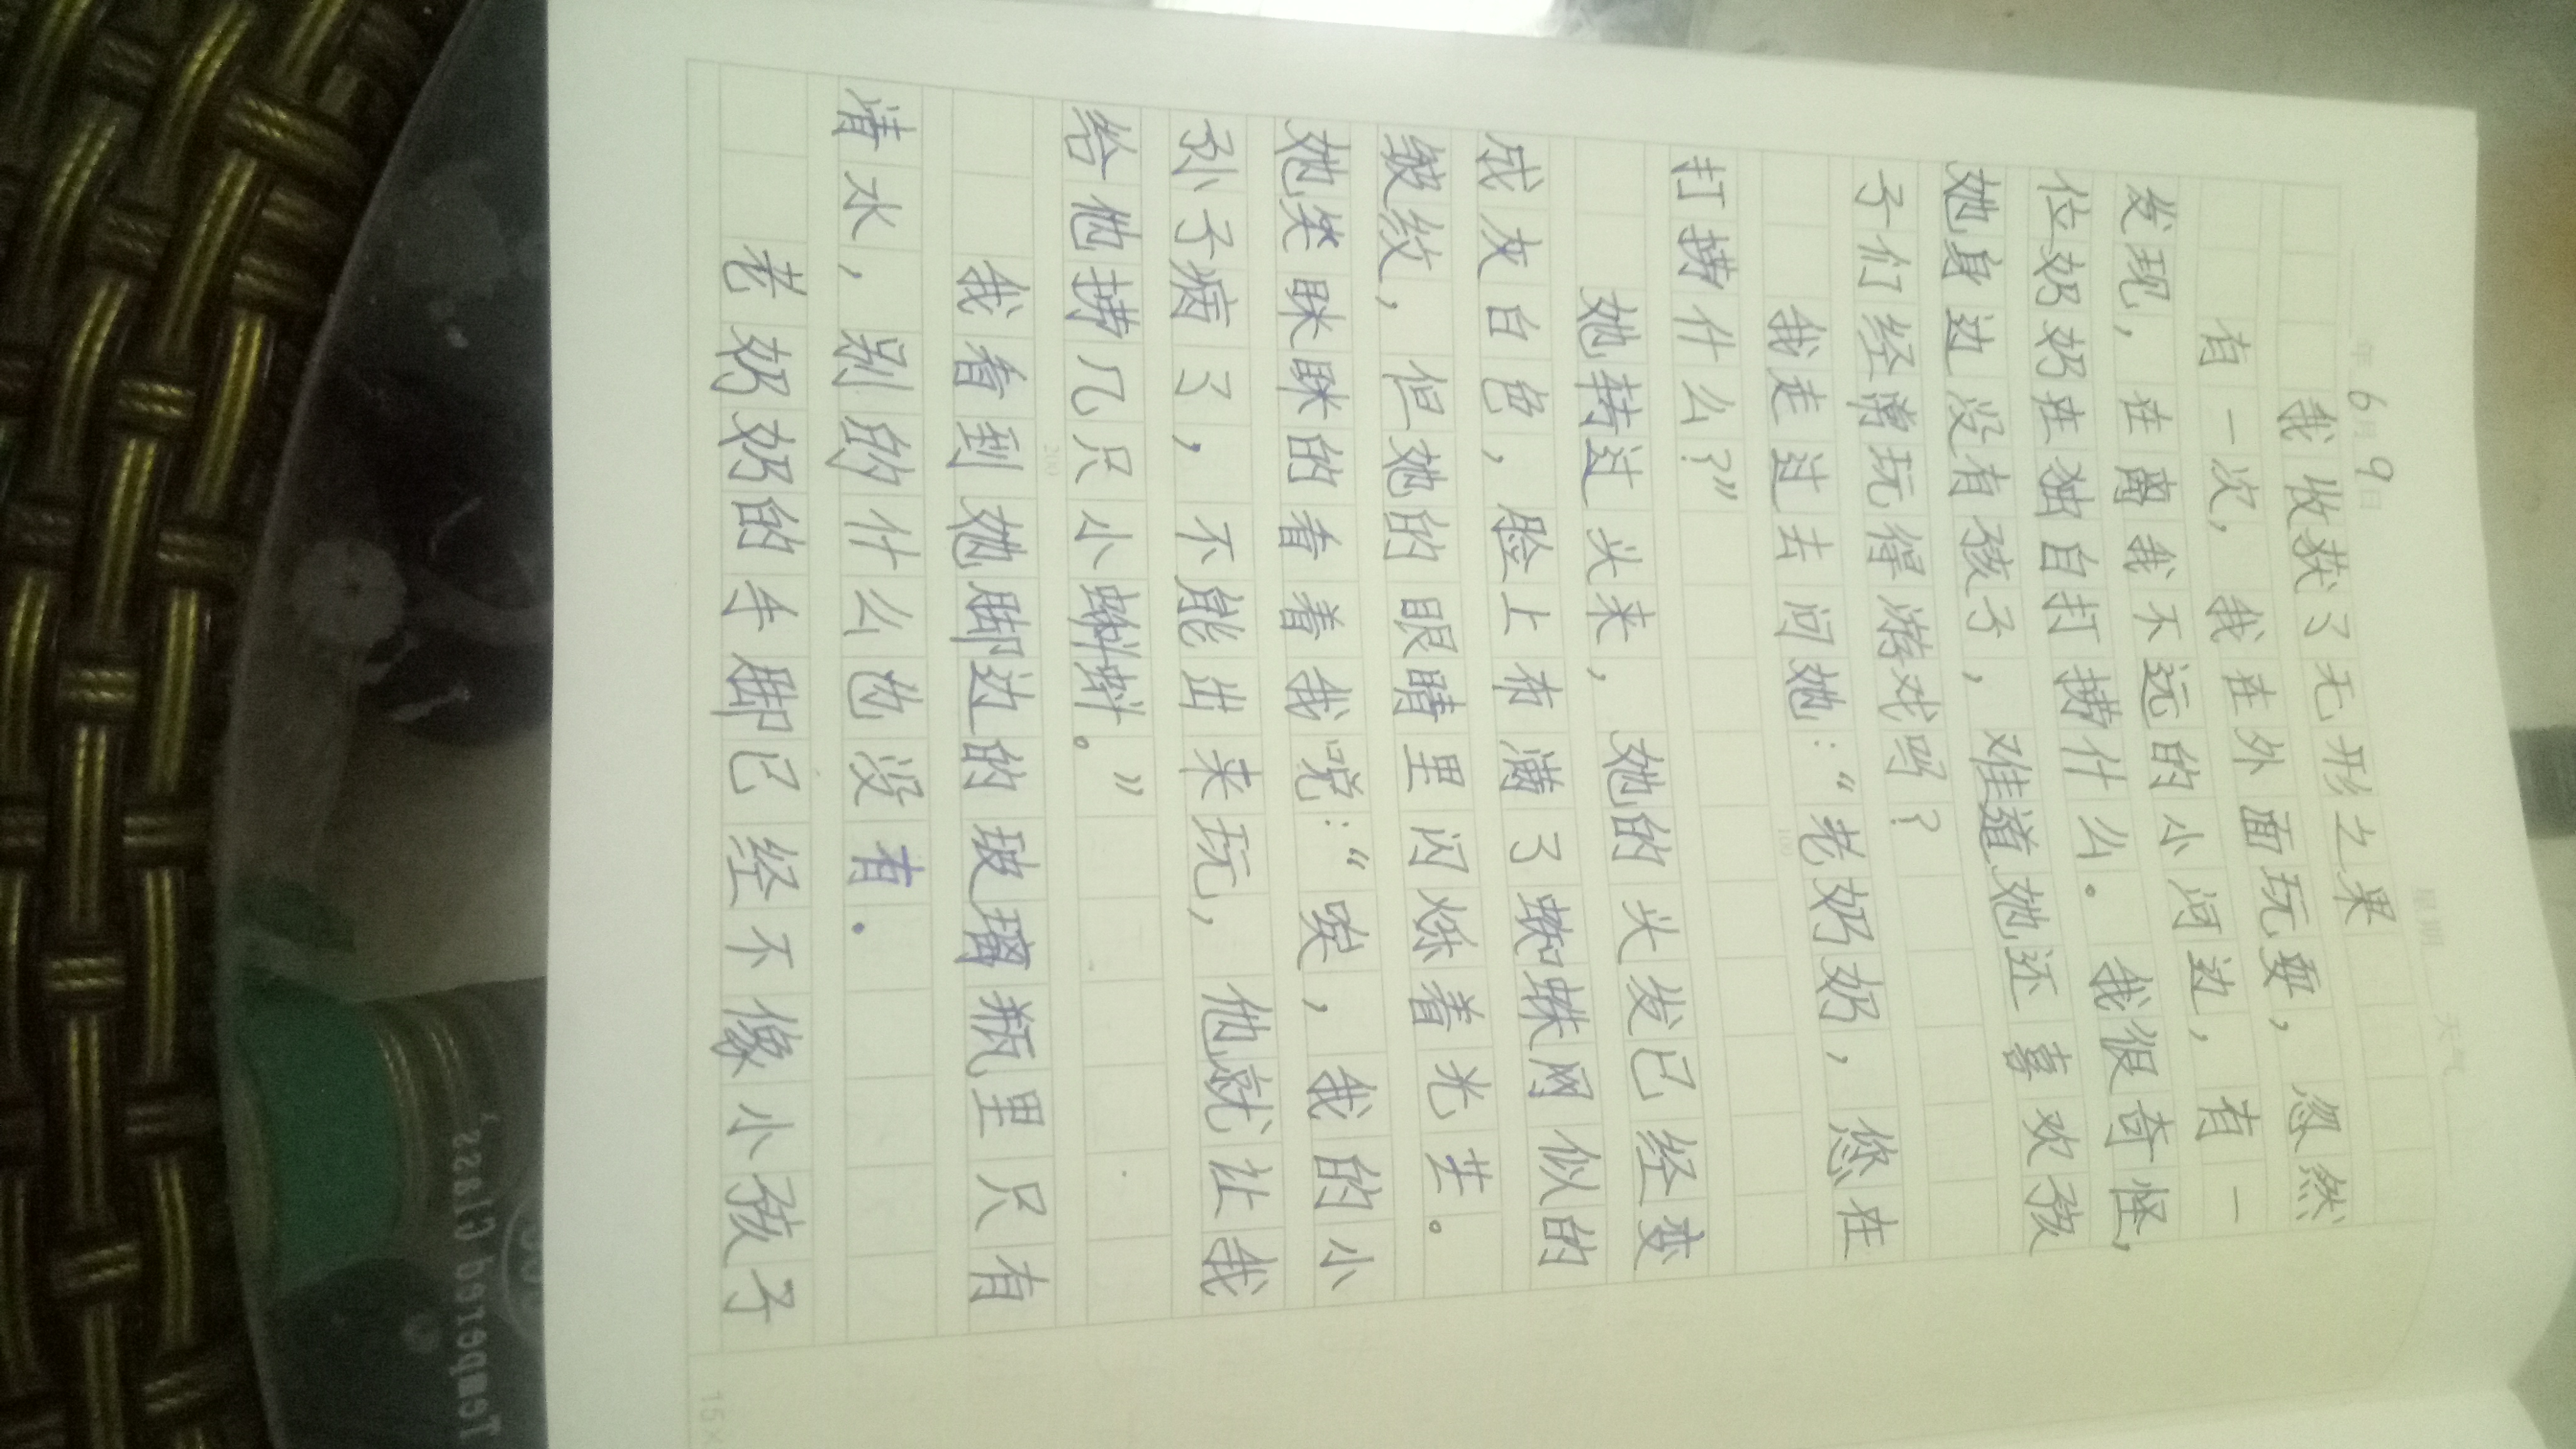 年6月9日 星期 天气
我收获了无形之果
有一次，我在外面玩耍，忽然
发现，在离我不远的小河边，有一
位奶奶在独自打捞什么。我很奇怪，
她身边没有孩子，难道她还喜欢孩
子们经常玩得游戏吗？
我走过去问她：“老奶奶，您在
打捞什么？”
100
她转过头来，她的头发已经变
成灰白色，脸上布满了蜘蛛网似的
皱纹，但她的眼睛里闪烁着光芒。
她笑眯眯的看着我说：“唉，我的小
孙子病了，不能出来玩，他就让我
给他捞几只小蝌蚪。”
200
我看到她脚边的玻璃瓶里只有
清水，别的什么也没有.
老奶奶的手脚已经不像小孩子
15×
Tempered Glass